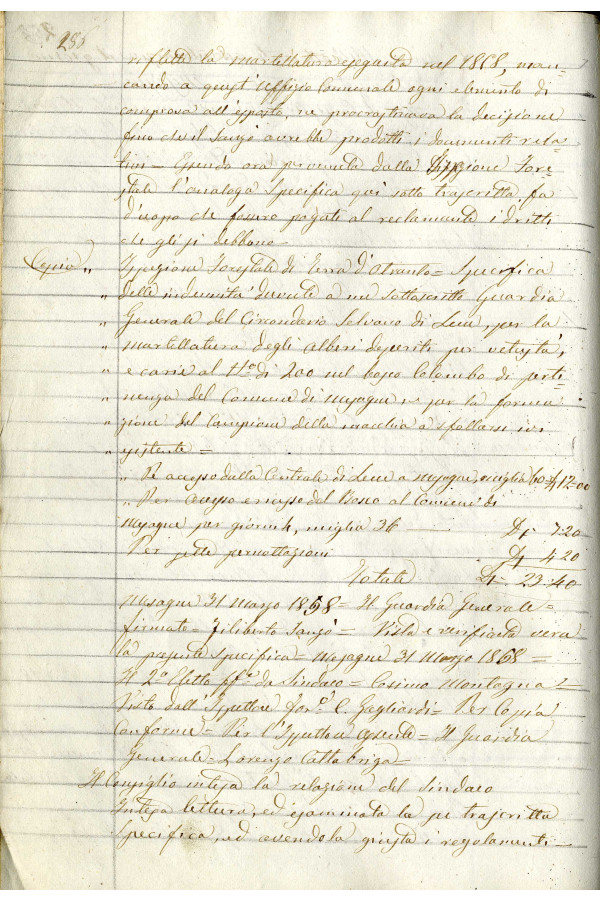 285
riflette la martellatura eseguita nel 1868, man-
cando a quest'Uffizio Comunale ogni elemento di
comprova all'esposto, ne procrastinava la decisione
fino che il Sangò avrebbe prodotti i documenti rela-
tivi = Essendo ora pervenuta dalla Ispezione Fore-
stale l'analoga Specifica qui sotto trascritta, fa
d'uopo che fossero pagati al reclamante i dritti
che gli si debbono =
Copia „ Ispezione Forestale di Terra d'Otranto = Specifica
„ delle indennità dovute a me sottoscritto Guardia
„ Generale del Circondario Selvano di Lecce, per la
„ martellatura degli alberi deperiti per vetustà,
„ e carie al N.o di 200 nel bosco Colombo di perti-
„ nenza del Comune di Mesagne, e per la forma-
„ zione del Campione della macchia a sfollarsi ivi
„ esistente =
„ Per accesso dalla Centrale di Lecce a Mesagne, miglia 60 = £ 12=00
„ Per accesso e recesso dal Bosco al Comune di
Mesagne per giorni 4, miglia 36 — £ 7:20
Per sette pernottazioni £ 4 20
Totale £ 23=40
Mesagne 31 Marzo 1868 = Il Guardia Generale =
firmato = Filiberto Sangò = Vista e verificata vera
la presente specifica = Mesagne 31 Marzo 1868 =
Il 2o Eletto ff. da Sindaco = Cosimo Montagna =
Visto dall'Ispettore for.e C. Gagliardi = Per Copia
Conforme = Per l'Ispettore assente = Il Guardia
Generale = Lorenzo Cattabriga =
Il Consiglio intesa la relazione del Sindaco
Intesa lettura, ed esaminata la su trascritta
Specifica, ed avendola giusta i regolamenti —